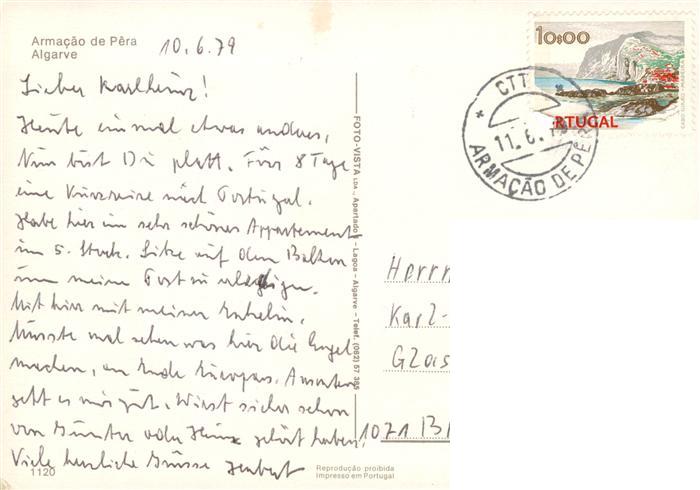 Armação de Pêra
Algarve
10.6.79
Lieber Karlheinz!
Heute einmal etwas anderes,
Nun bist Du platt. Für 8 Tage
eine Kurzreise nach Portugal.
Habe hier im sehr schönes Appartement
im 5. Stock. Sitze auf dem Balkon
um meine Post zu erledigen.
Mit hier mit meiner Enkelin.
Musste mal sehen was hier die Engel
machen, am Ende Europas. Ansonsten
geht es mir gut. Wirst sicher schon
von Günter oder Heinz gehört haben.
Viele herzliche Grüsse Herbert
1120
FOTO-VISTA LDA., Apartado 1 - Lagoa - Algarve - Telef. (082) 57 385
Reprodução proibida
Impresso em Portugal
10$00
RTUGAL
CTT
11.6.
ARMAÇÃO DE PÊRA
Herrn
Karl-
Glas
1071 B